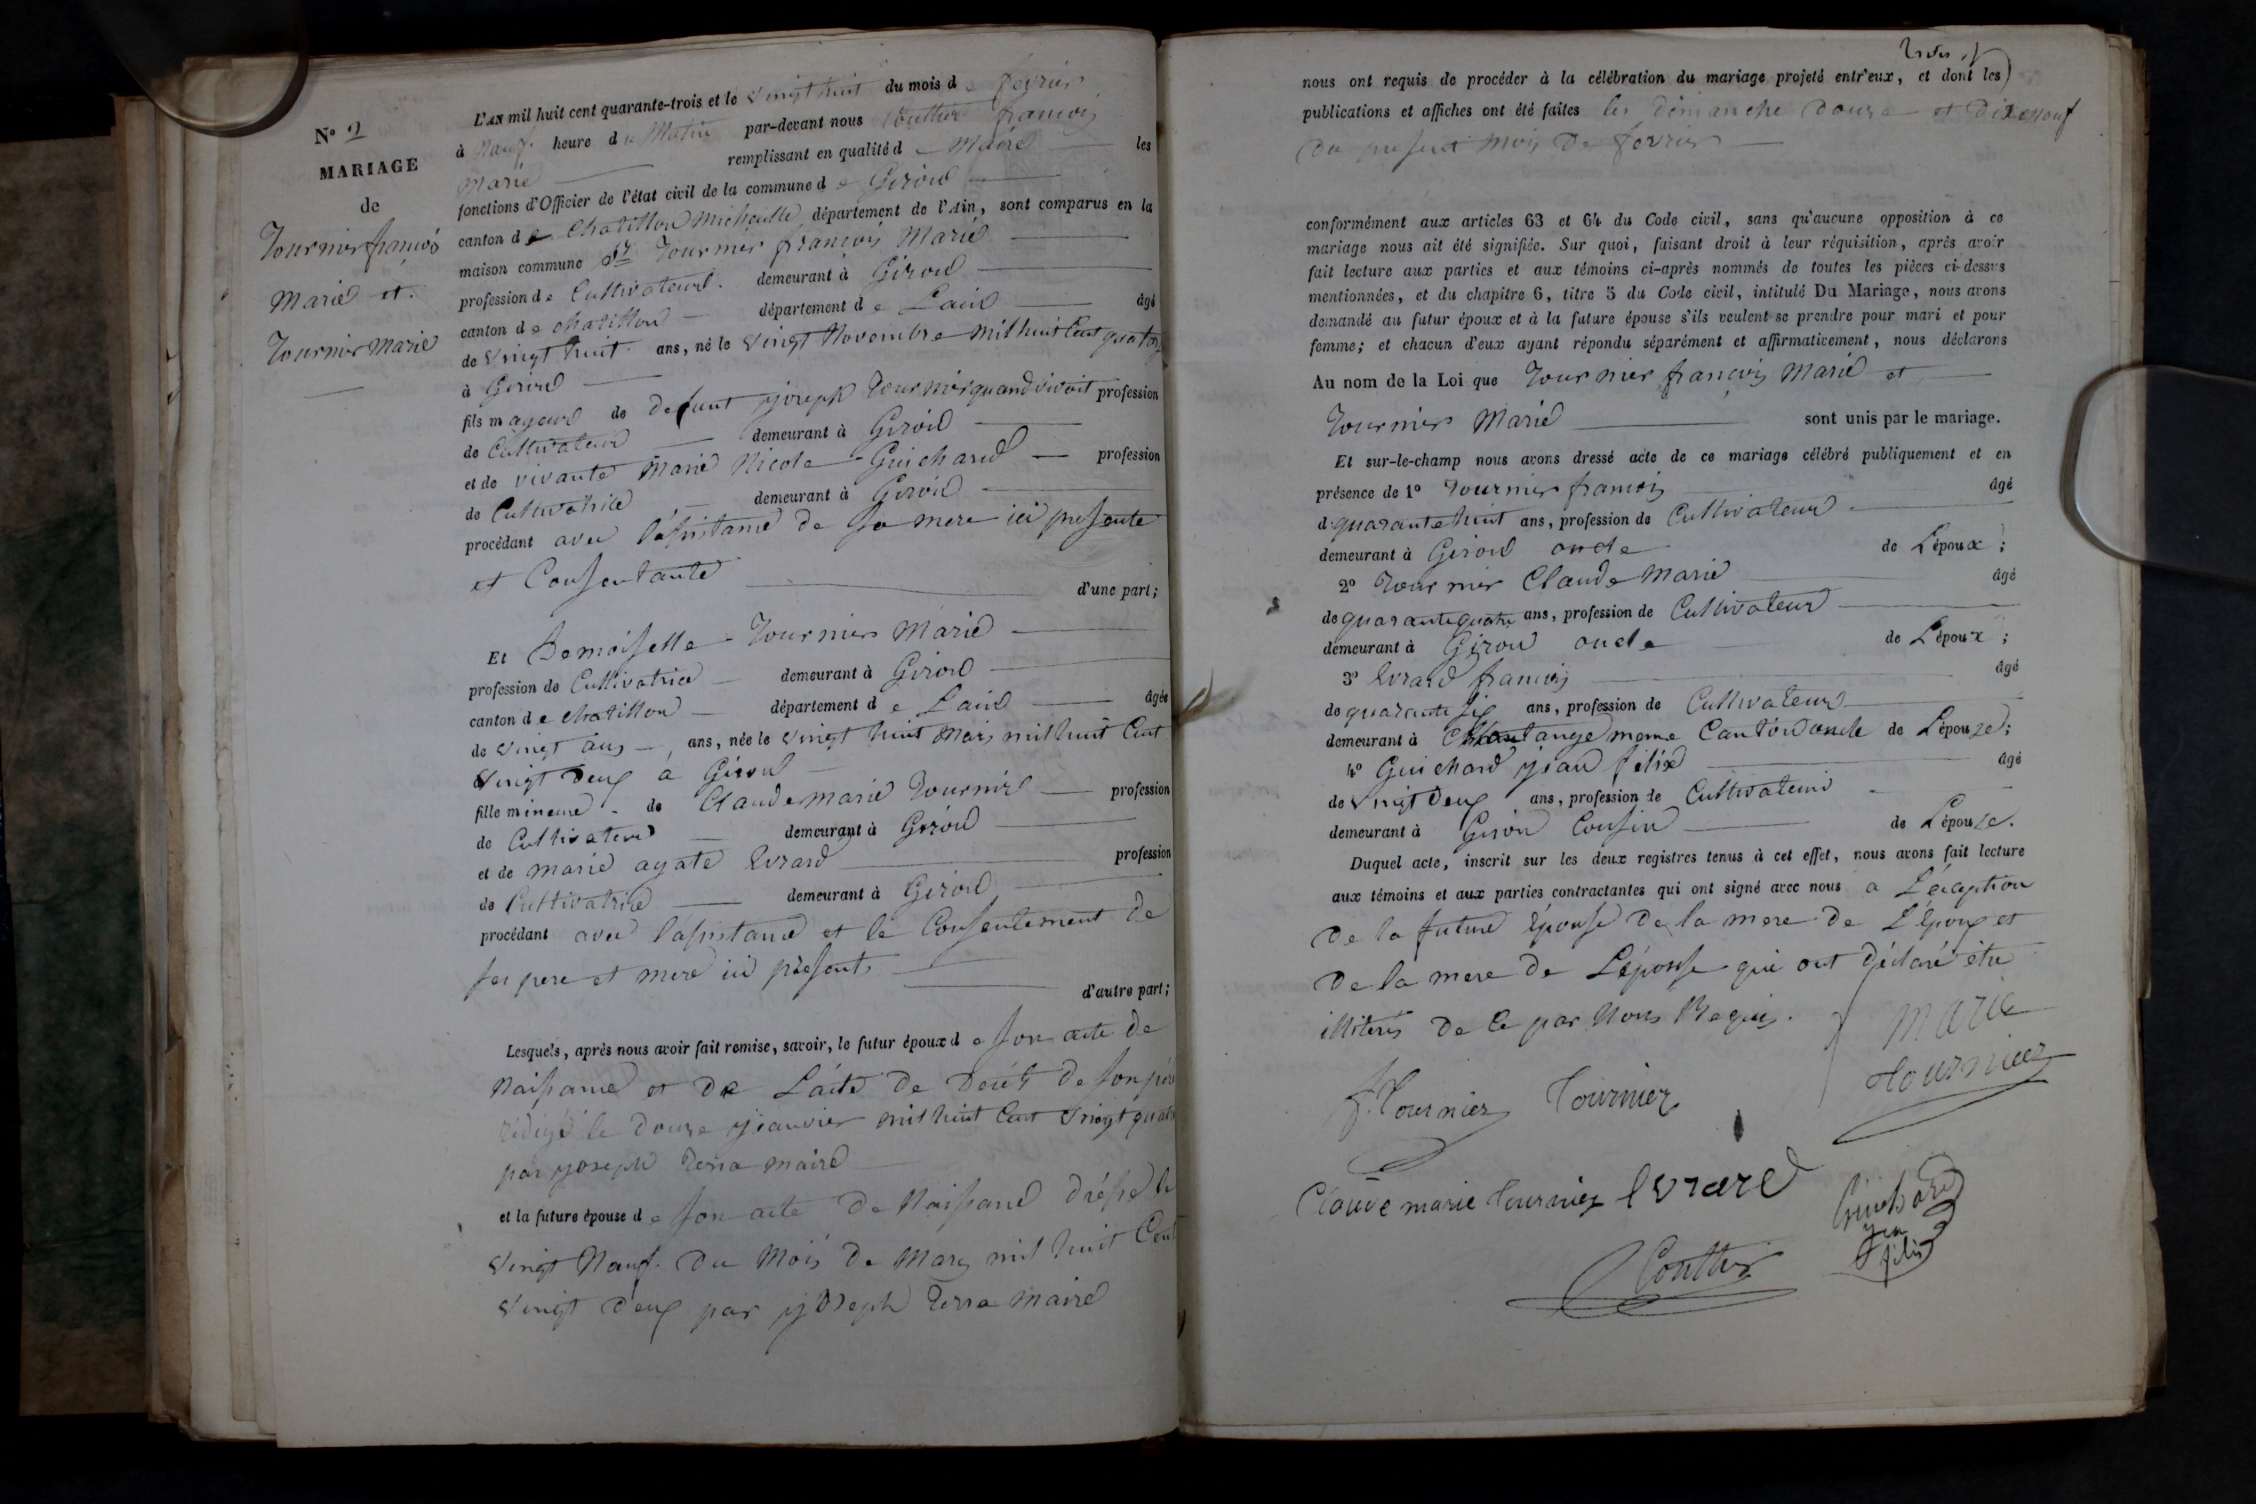 N° 2
MARIAGE
de
Tournier françois
Marie et
Tournier Marie
L'AN mil huit cent quarante-trois et le vingt huit du mois de fevrier
à Neuf heure du Matin par-devant nous Coutier françois
Marie remplissant en qualité de Maire les
fonctions d'Officier de l'état civil de la commune de Giron
canton de Chatillon Michaille département de l'Ain, sont comparus en la
maison commune Sr Tournier françois Marie
profession de Cultivateur demeurant à Giron
canton de chatillon département de Lain âgé
de vingt huit ans, né le vingt Novembre mil huit Cent quatorze
à Giron
fils mageur de defunt joseph Tournier quand vivoit profession
de Cultivateur demeurant à Giron
et de vivante Marie Nicole Guichard profession
de Cultivatrice demeurant à Giron
procédant avec l'assistance de sa mere ici presente
et Consentante d'une part;
Et Demoiselle Tournier Marie
profession de Cultivatrice demeurant à Giron
canton de chatillon département de Lain âgée
de vingt ans ans, née le vingt huit Mars mil huit Cent
vingt deux à Giron
fille mineure de Claude marie Tournier profession
de Cultivateur demeurant à Giron
et de marie agate Evrard profession
de Cultivatrice demeurant à Giron
procédant avec l'assistance et le Consentement de
ses pere et mere ici présents
d'autre part;
Lesquels, après nous avoir fait remise, savoir, le futur époux de son acte de
Naissance et de L'acte de Decés de son père
rédigé le douze janvier mil huit Cent vingt quatre
par joseph Terra maire
et la future épouse de son acte de Naissance dréssé le
vingt Neuf du Mois de Mars mil huit Cent
vingt deux par joseph Terra Maire
nous ont requis de procéder à la célébration du mariage projeté entr'eux, et dont les
publications et affiches ont été faites les dimanche douze et dixneuf
du present mois de fevrier
conformément aux articles 63 et 64 du Code civil, sans qu'aucune opposition à ce
mariage nous ait été signifiée. Sur quoi, faisant droit à leur réquisition, après avoir
fait lecture aux parties et aux témoins ci-après nommés de toutes les pièces ci-dessus
mentionnées, et du chapitre 6, titre 5 du Code civil, intitulé Du Mariage, nous avons
demandé au futur époux et à la future épouse s'ils veulent se prendre pour mari et pour
femme; et chacun d'eux ayant répondu séparément et affirmativement, nous déclarons
Au nom de la Loi que Tournier françois Marie et
Tournier Marie sont unis par le mariage.
Et sur-le-champ nous avons dressé acte de ce mariage célébré publiquement et en
présence de 1° Tournier francois âgé
d quarante huit ans, profession de Cultivateur
demeurant à Giron oncle de L'époux;
2° Tournier Claude Marie âgé
de quarante quatre ans, profession de Cultivateur
demeurant à Giron oncle de L'époux;
3° Evrard francois âgé
de quarante six ans, profession de Cultivateur
demeurant à tange meme Canton oncle de L'épouze;
4° Guichard jean félix âgé
de vingt deux ans, profession de Cultivateur
demeurant à Giron Cousin de L'épouze.
Duquel acte, inscrit sur les deux registres tenus à cet effet, nous avons fait lecture
aux témoins et aux parties contractantes qui ont signé avec nous a L'éxception
de la future épouse de la mere de L'époux et
de la mere de L'épouse qui ont déclaré être
illiterés de Ce par Nous Requis.
Marie
tournier
f. tournier Tournier
Claude marie tournier Evrard
Guichard
jean
félix
Coutier